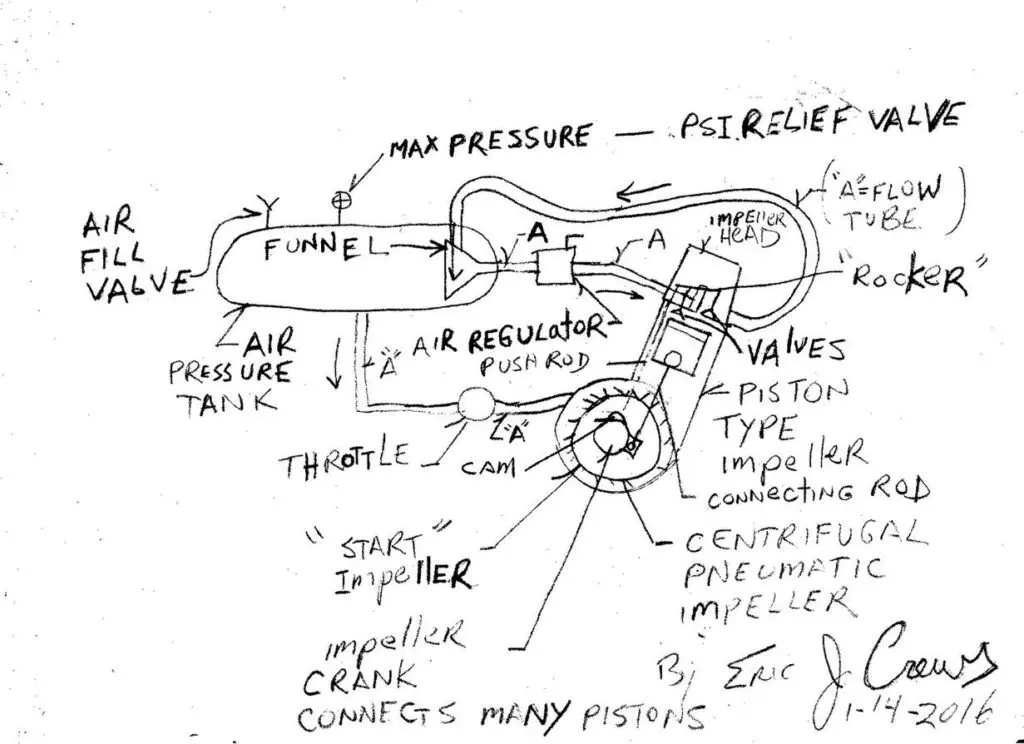 MAX PRESSURE — PSI. RELIEF VALVE
AIR
FILL
VALVE
FUNNEL
A
A
IMPELLER
HEAD
("A"=FLOW
TUBE)
"ROCKER"
AIR
PRESSURE
TANK
"A"
AIR REGULATOR
PUSH ROD
VALVES
PISTON
TYPE
IMPELLER
CONNECTING ROD
THROTTLE
"A"
CAM
"START"
IMPELLER
CENTRIFUGAL
PNEUMATIC
IMPELLER
IMPELLER
CRANK
CONNECTS MANY PISTONS
By ERIC J
1-14-2016